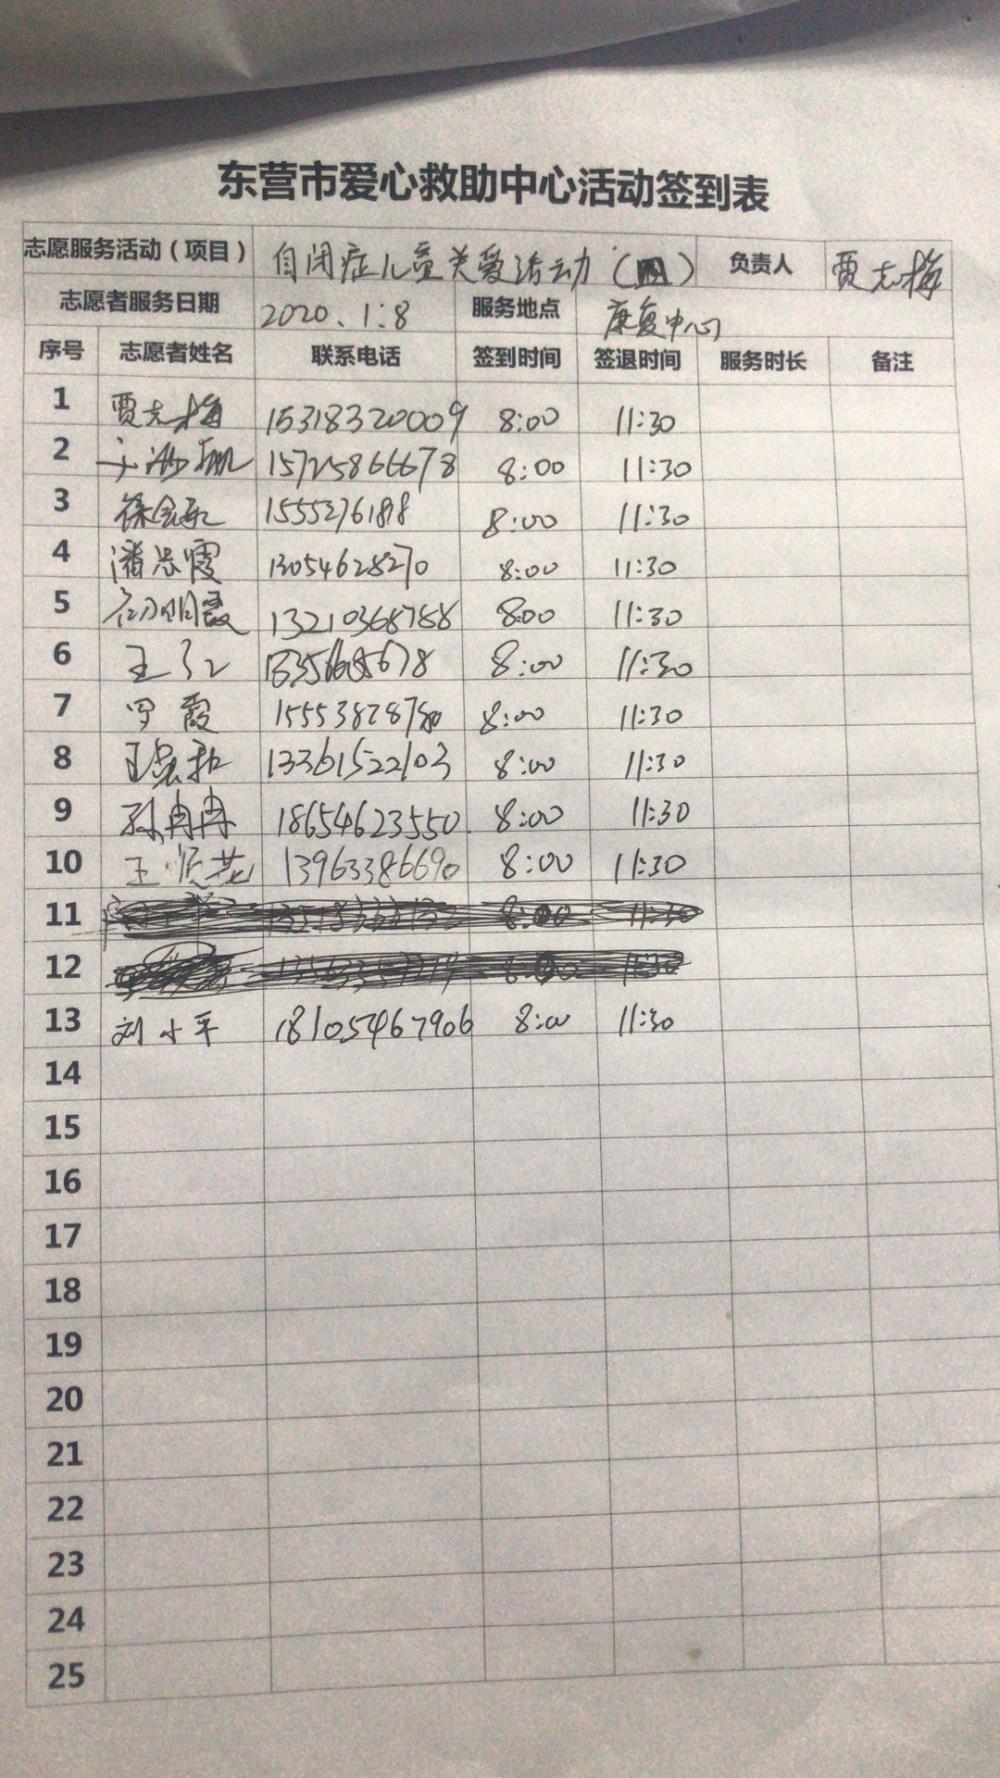 东营市爱心救助中心活动签到表
志愿服务活动（项目） 自闭症儿童关爱活动（四） 负责人 贾志梅
志愿者服务日期 2020.1.8 服务地点 康复中心
序号 志愿者姓名 联系电话 签到时间 签退时间 服务时长 备注
1 贾志梅 15318320009 8:00 11:30
2 15725866678 8:00 11:30
3 8:00 11:30
4 潘忠霞 13054628270 8:00 11:30
5 初明霞 13210368788 8:00 11:30
6 8:00 11:30
7 罗霞 8:00 11:30
8 13361522103 8:00 11:30
9 孙冉冉 18654623550 8:00 11:30
10 王顺花 13963386690 8:00 11:30
11 8:00 11:30
12
13 刘小平 18105467906 8:00 11:30
14
15
16
17
18
19
20
21
22
23
24
25